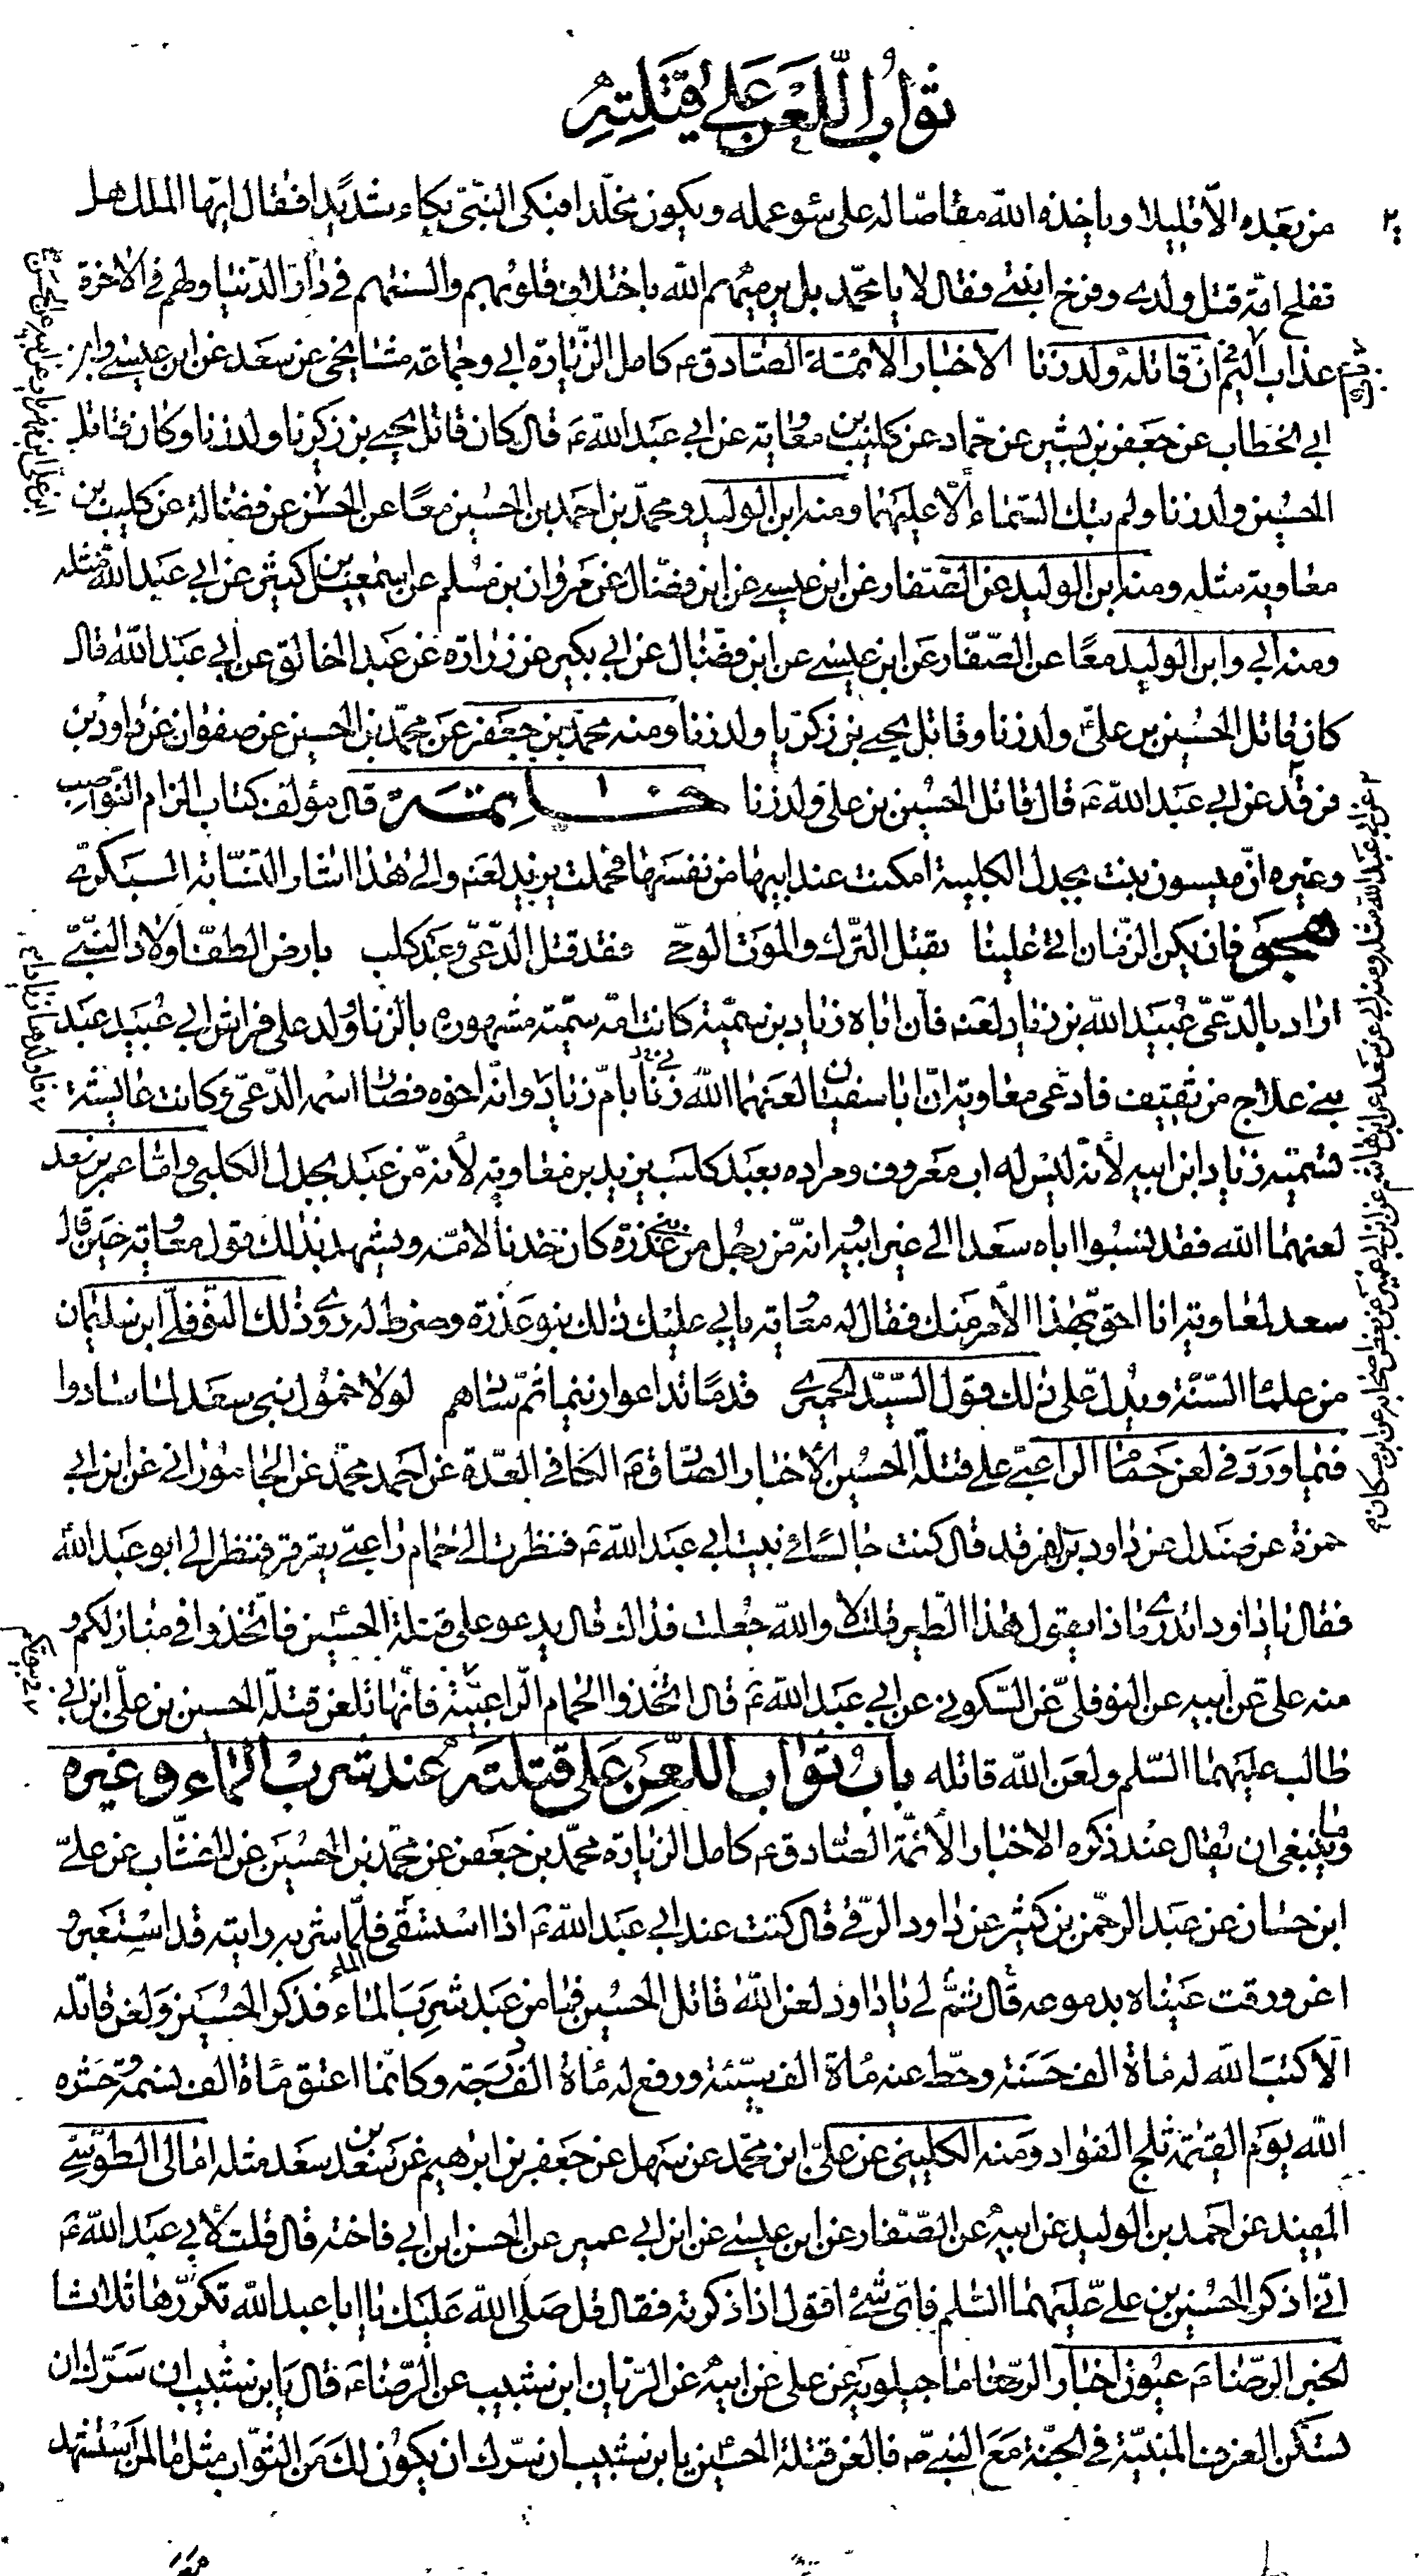 ثواب اللعن على قتلته
من بعده الا قليلا وياخذه الله مقاصا له على سوء عمله ويكون مخلدا فبكى النبي بكاء شديدا فقال ايها الملك هل
تفلح امة قتل ولدي وفرخ ابنتي فقال لا يا محمد بل يرميهم الله باختلاف قلوبهم والسنتهم في دار الدنيا ولهم في الاخرة
عذاب اليم ان قاتله ولد زنا الاخبار الائمة الصادق ع كامل الزيارة ابي وجماعة مشايخي عن سعد عن ابن عيسى وابن
ابي الخطاب عن جعفر بن بشير عن حماد عن كليب بن معوية عن ابي عبد الله ع قال كان قاتل يحيى بن زكريا ولد زنا وكان قاتل
الحسين ولد زنا ولم تبك السماء الا عليهما ومنه ابن الوليد ومحمد بن احمد بن الحسين معا عن الحسن عن فضالة عن كليب بن
معاوية مثله ومنه ابن الوليد عن الصفار عن ابن عيسى عن ابن فضال عن مروان بن مسلم عن اسمعيل بن كثير عن ابي عبد الله مثله
ومنه ابي وابن الوليد معا عن الصفار عن ابن عيسى عن ابن فضال عن ابي بكير عن زرارة عن عبد الخالق عن ابي عبد الله قال
كان قاتل الحسين بن علي ولد زنا وقاتل يحيى بن زكريا ولد زنا ومنه محمد بن جعفر عن محمد بن الحسين عن صفوان عن داود بن
فرقد عن ابي عبد الله ع قال قاتل الحسين بن علي ولد زنا خاتمة قال مؤلف كتاب الزام النواصب
وغيره ان ميسون بنت بجدل الكلبية امكنت عبد ابيها من نفسها فحملت يزيد لعنه والى هذا اشار النسابة البكري
فان يكن الزمان اتى علينا بقتل الترك والموت الوحي فقد قتل الدعي وعبد كلب بارض الطف اولاد النبي
اراد بالدعي عبيد الله بن زياد لعنه فان اباه زياد بن سمية كانت امه سمية مشهورة بالزنا ولد على فراش ابي عبيد عبد
بني علاج من ثقيف فادعى معاوية ان ابا سفيان لعنهما الله زنا بام زياد وانه اخوه فصار اسمه الدعي وكانت عايشة
تسميه زياد ابن ابيه لانه ليس له اب معروف ومراده بعبد كلب يزيد بن معاوية لانه من عبد بجدل الكلبي واما عمر بن سعد
لعنهما الله فقد نسبوا اباه سعدا الى غير ابيه انه من رجل من بني عذرة كان خدنا لامه ويشهد بذلك قول معوية حين قال
سعد لمعاوية انا احق بهذا الامر منك فقال له معوية يابى عليك ذلك بنو عذرة وضرط له روى ذلك النوفلي ابن سليمان
من علماء السنة ويدل على ذلك قول السيد الحميري قدما تداعوا زنيما ثم ساهم لولا خمول بني سعد لما سادوا
فيما ورد في لعن حمام الراعبي على قتلة الحسين الاخبار الصادق ع الكافي العدة عن احمد محمد عن الجاموراني عن ابن ابي
حمزة عن صندل عن داود بن فرقد قال كنت جالسا في بيت ابي عبد الله ع فنظرت الى حمام راعبي يقرقر فنظر الي ابو عبد الله
فقال يا داود اتدري ماذا يقول هذا الطير قلت لا والله جعلت فداك قال يدعو على قتلة الحسين فاتخذوا في منازلكم و
منه علي عن ابيه عن النوفلي عن السكوني عن ابي عبد الله ع قال اتخذوا الحمام الراعبية فانها تلعن قتلة الحسين بن علي بن ابي
طالب عليهما السلم ولعن الله قاتله باب ثواب اللعن على قتلته عند شرب الماء وغيره
وما ينبغي ان يقال عند ذكره الاخبار الائمة الصادق ع كامل الزيارة محمد بن جعفر عن محمد بن الحسين عن الخشاب عن علي
ابن حسان عن عبد الرحمن بن كثير عن داود الرقي قال كنت عند ابي عبد الله ع اذا استسقى الماء فلما شربه رايته قد استعبر و
اغرورقت عيناه بدموعه قال ثم لي يا داود لعن الله قاتل الحسين فما من عبد شرب الماء فذكر الحسين ولعن قاتله
الا كتب الله له ماة الف حسنة وحط عنه ماة الف سيئة ورفع له ماة الف درجة وكانما اعتق ماة الف نسمة وحشره
الله يوم القيمة ثلج الفواد ومنه الكليني عن علي ابن محمد عن سهل عن جعفر بن ابرهيم عن سعد بن سعد مثله امالي الطوسي
المفيد عن احمد بن الوليد عن ابيه عن الصفار عن ابن عيسى عن ابن ابي عمير عن الحسن ابن ابي فاخته قال قلت لابي عبد الله ع
اني اذكر الحسين بن علي عليهما السلم فاي شيء اقول اذا ذكرته فقال قل صلى الله عليك يا ابا عبد الله تكررها ثلاثا
لخبر الرضا ع عيون اخبار الرضا ماجيلويه عن علي عن ابيه عن الريان ابن شبيب عن الرضا ع قال يا بن شبيب ان سرك ان
تسكن الغرف المبنية في الجنة مع النبي ص فالعن قتلة الحسين يا بن شبيب ان سرك ان يكون لك من الثواب مثل ما لمن استشهد